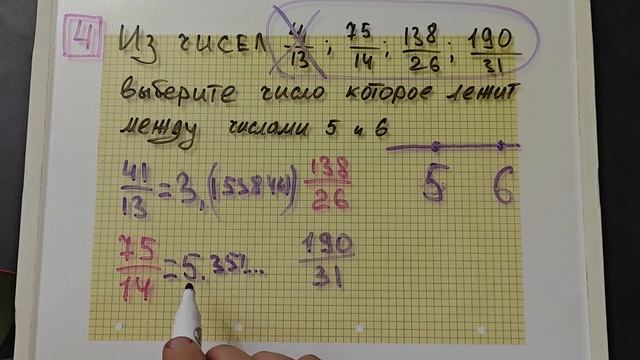 4 Из чисел 41/13; 75/14; 138/26; 190/31
выберите число которое лежит
между числами 5 и 6
5 6
41/13 = 3,(153846) 138/26
75/14 = 5.351... 190/31